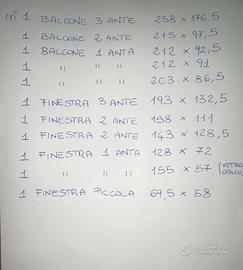 n° 1 BALCONE 3 ANTE 258 x 176,5
1 BALCONE 2 ANTE 215 x 97,5
1 BALCONE 1 ANTA 212 x 92,5
1 " " " 212 x 91
1 " " " 203 x 86,5
1 FINESTRA 3 ANTE 193 x 132,5
1 FINESTRA 2 ANTE 158 x 111
1 FINESTRA 2 ANTE 143 x 128,5
1 FINESTRA 1 ANTA 128 x 72
1 " " " 155 x 57 (VETRO OPACO)
1 FINESTRA PICCOLA 69,5 x 58
subito